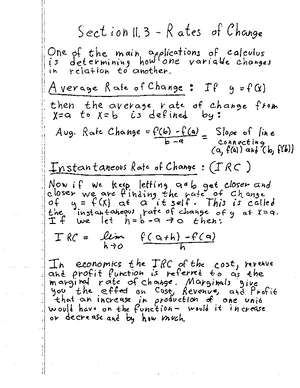 Section 11.3 - Rates of Change
One of the main applications of calculus
is determining how one variable changes
in relation to another.
Average Rate of Change : If y = f(x)
then the average rate of change from
x=a to x=b is defined by:
Avg. Rate Change = f(b) - f(a) / b - a = Slope of line
connecting
(a, f(a)) and (b, f(b))
Instantaneous Rate of Change : (IRC)
Now if we keep letting a & b get closer and
closer we are finding the rate of change
of y = f(x) at a itself. This is called
the instantaneous rate of change of y at x=a.
If we let h = b - a → 0 then:
IRC = lim h→0 f(a+h) - f(a) / h
In economics the IRC of the cost, revenue
and profit function is referred to as the
marginal rate of change. Marginals give
you the effect on Cost, Revenue, and Profit
that an increase in production of one unit
would have on the function - would it increase
or decrease and by how much.